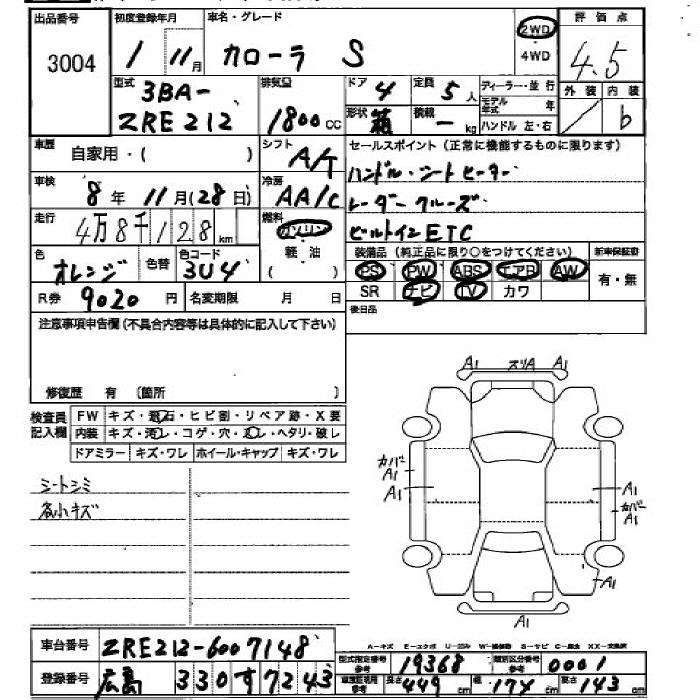 出品番号 3004
初度登録年月 1 11月
車名・グレード カローラ S
2WD 4WD
評価点 4.5
外装 内装 b
型式 3BA-ZRE212
排気量 1800cc
ドア 4
定員 5人
形状 箱
積載 ー kg
ディーラー・並行
モデル年式 年
ハンドル 左・右
車歴 自家用・( )
シフト A/T
セールスポイント(正常に機能するものに限ります)
ハンドル・シートヒーター
レーダークルーズ
ビルトインETC
車検 8年 11月(28日)
冷房 AA/C
走行 4万8千128km
燃料 ガソリン 軽油 ( )
色 オレンジ 色替
色コード 3U4
装備品(純正品に限り○をつけてください)
PS PW ABS エアB AW
SR ナビ TV カワ
新車保証書 有・無
R券 9020円
名変期限 月 日
後日品
注意事項申告欄(不具合内容等は具体的に記入して下さい)
修復歴 有 〔箇所 〕
検査員記入欄
FW キズ・飛石・ヒビ割・リペア跡・X要
内装 キズ・汚レ・コゲ・穴・スレ・ヘタリ・破レ
ドアミラー キズ・ワレ ホイール・キャップ キズ・ワレ
シートシミ
各小キズ
A1 スリA A1
カバーA1
A1
A1
カバーA1
A1
A1
車台番号 ZRE212-6007148
登録番号 広島 330す7243
A-キズ E-エクボ U-凹み W-補修跡 S-サビ C-腐食 XX-交換済
型式指定番号 参考 19368
類別区分番号 参考 0001
長さ 449cm 幅 174cm 高さ 143cm